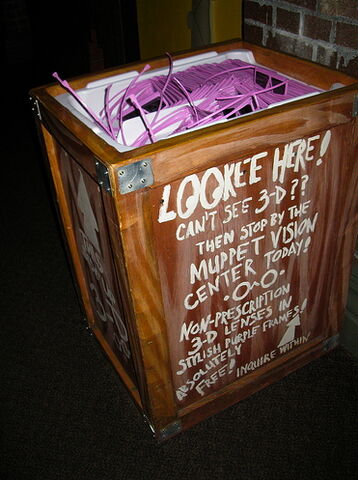 LOOKEE HERE!
CAN'T SEE 3-D??
THEN STOP BY THE
MUPPET VISION
CENTER TODAY!
NON-PRESCRIPTION
3-D LENSES IN
STYLISH PURPLE FRAMES!
ABSOLUTELY
FREE! INQUIRE WITHIN!